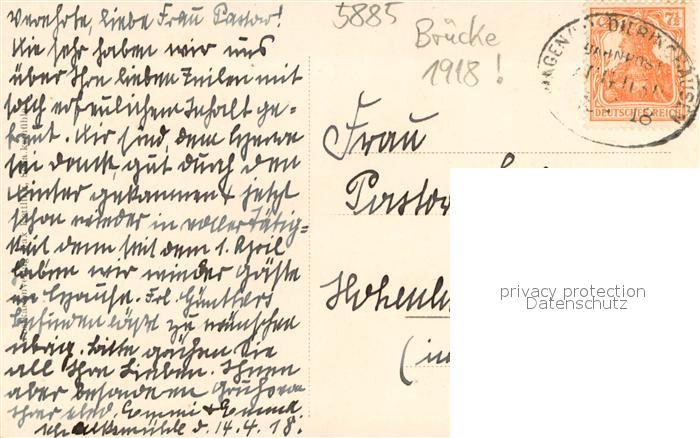 Verehrte, liebe Frau Pastor!
Wie sehr haben wir uns
über Ihre lieben Zeilen mit
solch erfreulichem Inhalt ge-
freut. Wir sind, dem Herrn
sei Dank, gut durch den
Winter gekommen & jetzt
schon wieder in voller Tätig-
keit denn seit dem 1. April
haben wir wieder Gäste
im Hause. Frl. Günthers
Befinden läßt zu wünschen
übrig. Bitte grüßen Sie
all Ihre Lieben. Ihnen
aber besonderen Gruß von
Ihrer Emmi & Emma
d. 14.4.18.
5885
Brücke
1918!
Frau
Pastor
Hohenl
(in
7½
DEUTSCHES REICH
DIERINGHAUSEN
BAHNPOST
18
privacy protection
Datenschutz